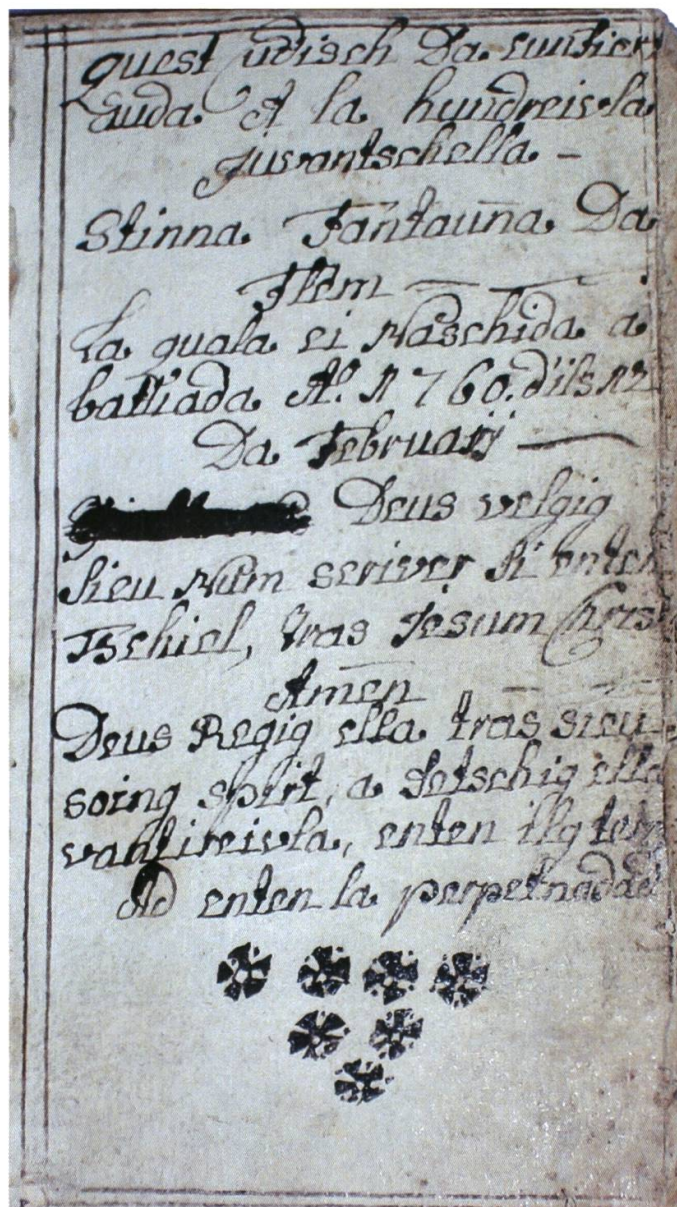 Quest Cudisch Da cuntien
auda A la hundreivla
Juvantschella –
Stinna Fantauna Da
Flem
la quala ei Naschida a
battiada Aº. 1760. d'ils 12
Da Februarij
Deus velgig
sieu Num scriver si enten
Tschiel, tras Jesum Christ
Amen
Deus Regig ella tras sieu
soing spirt, a fetschig ella
vantireivla, enten ilg tem
Ad enten la perpetnadad